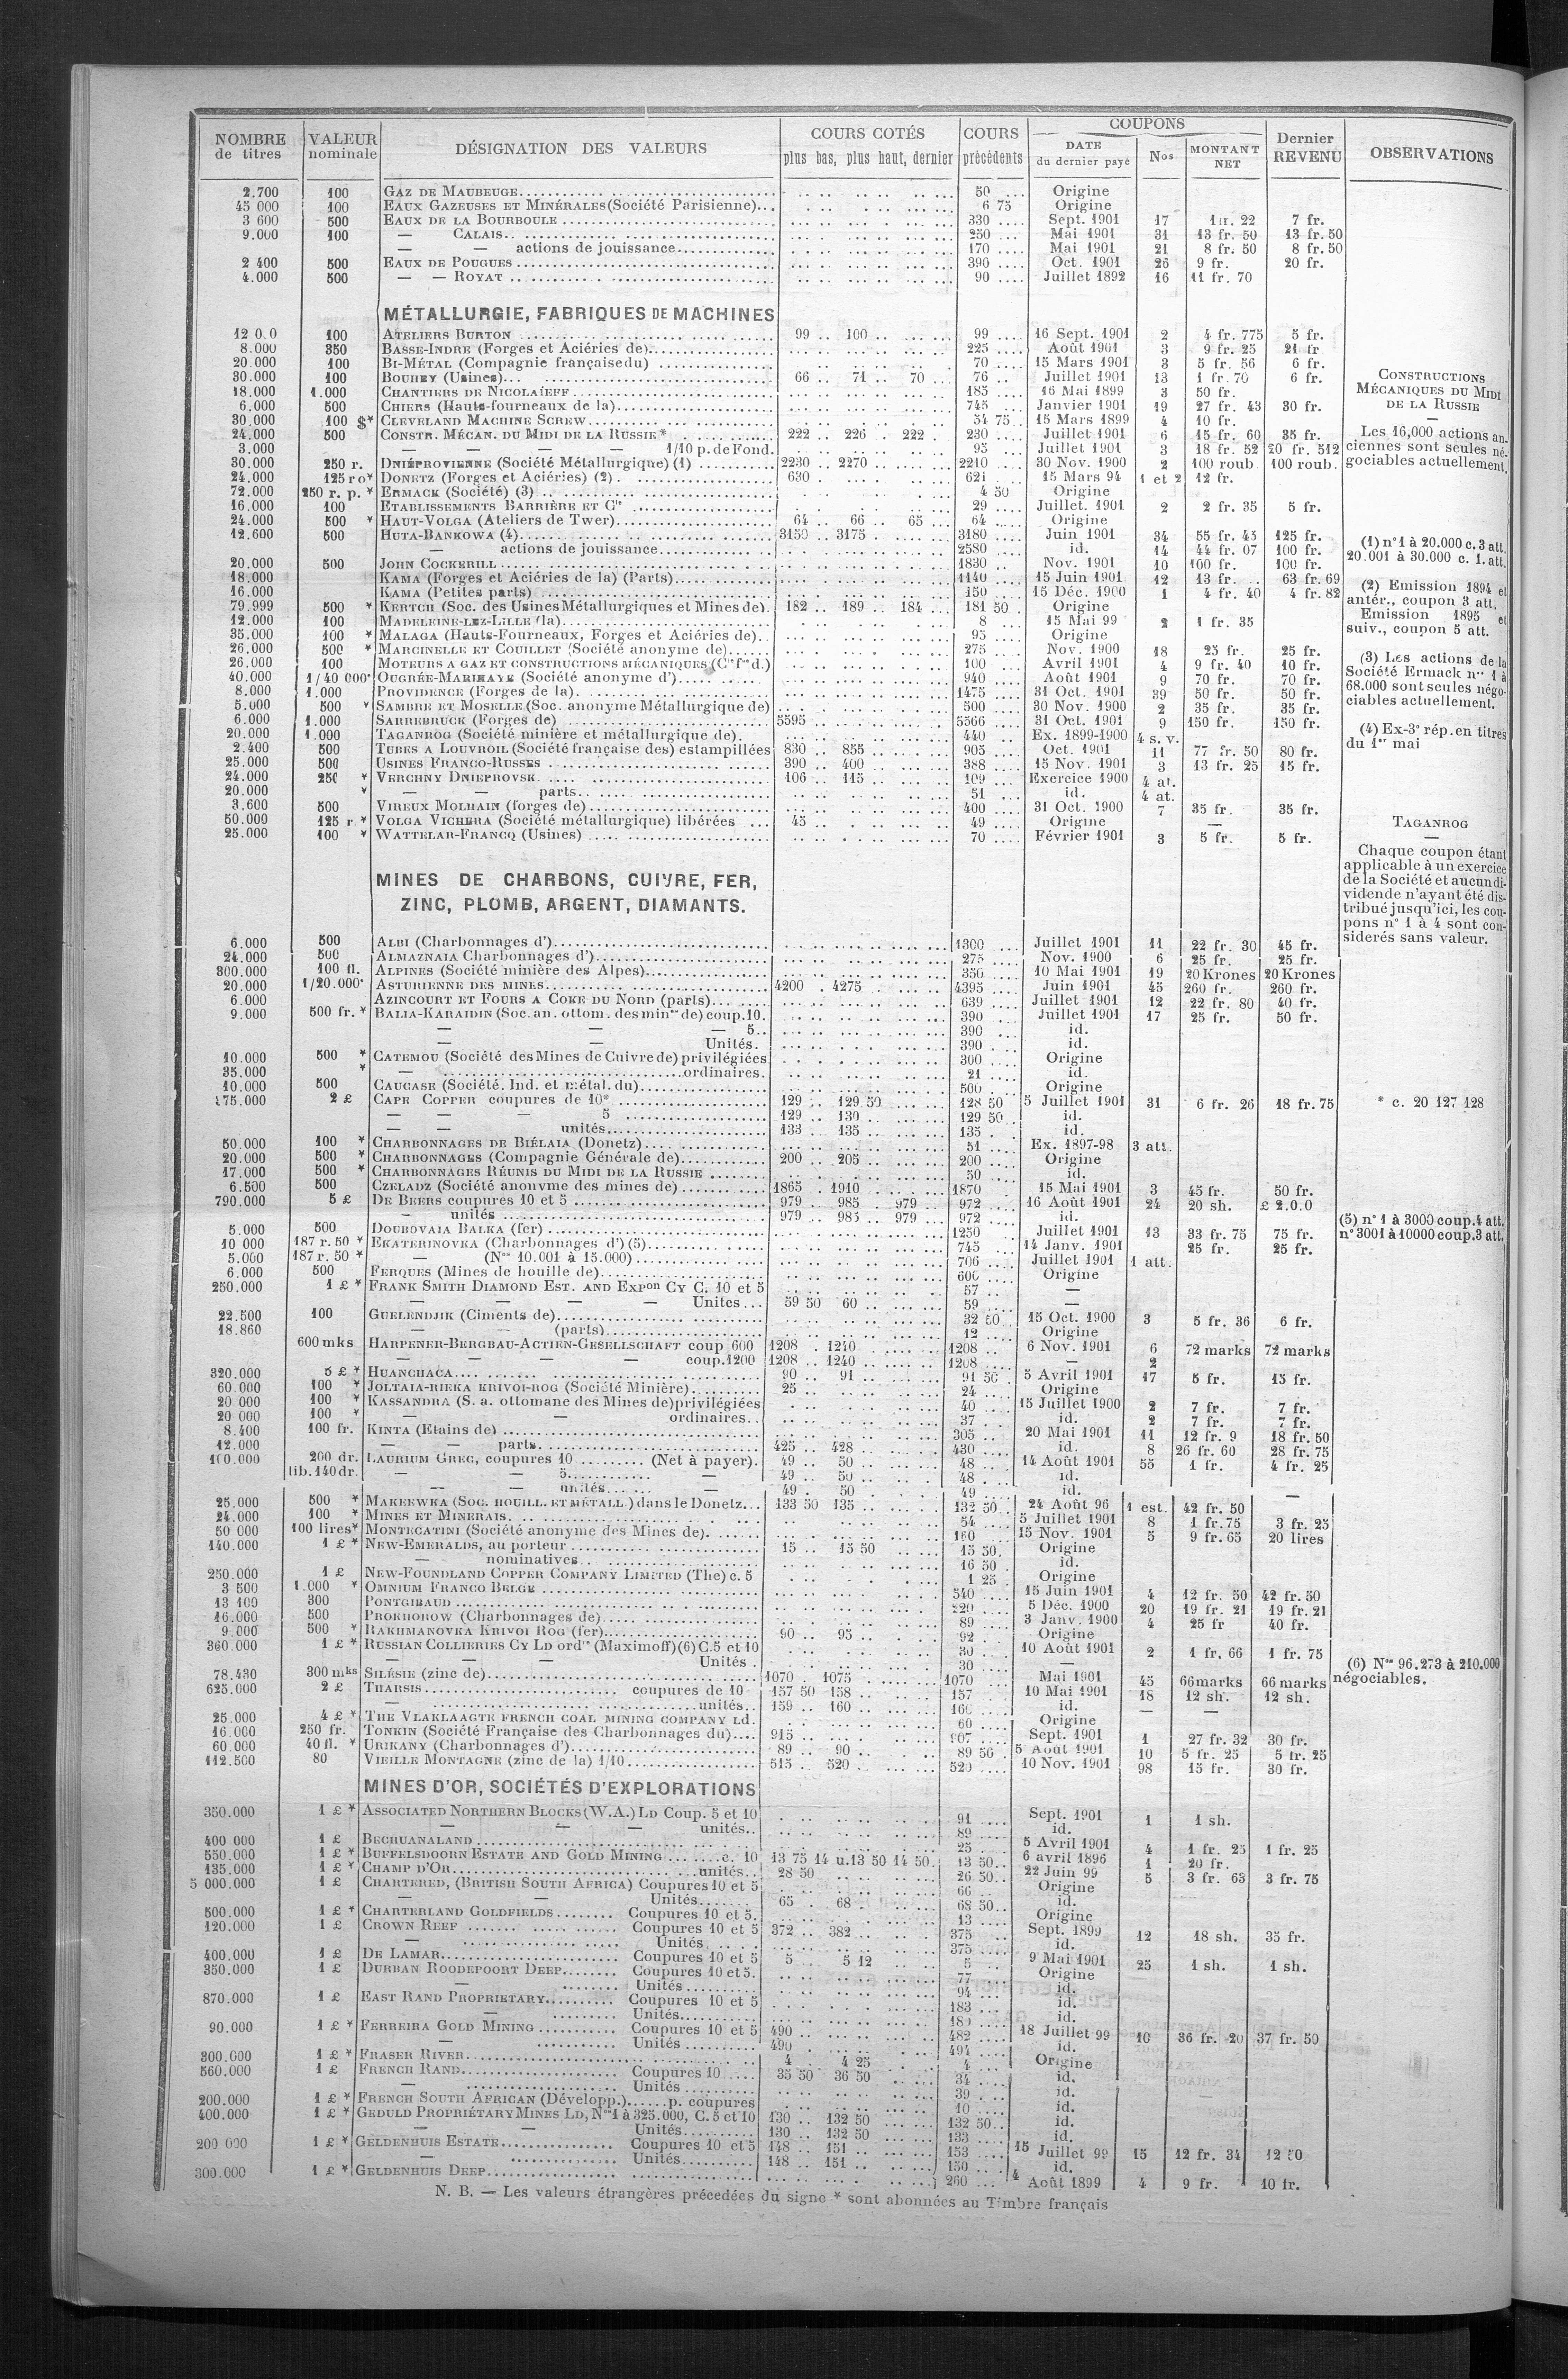 NOMBRE de titres | VALEUR nominale | DÉSIGNATION DES VALEURS | COURS COTÉS plus bas, plus haut, dernier | COURS précédents | COUPONS DATE du dernier payé | Nos | MONTANT NET | Dernier REVENU | OBSERVATIONS
2.700 100 GAZ DE MAUBEUGE 50 Origine
45 000 100 EAUX GAZEUSES ET MINÉRALES (Société Parisienne) 6 75 Origine
3 600 500 EAUX DE LA BOURBOULE 330 Sept. 1901 17 1 fr. 22 7 fr.
9.000 100 — CALAIS 250 Mai 1901 31 13 fr. 50 13 fr. 50
— — actions de jouissance 170 Mai 1901 21 8 fr. 50 8 fr. 50
2 400 500 EAUX DE POUGUES 390 Oct. 1901 26 9 fr. 20 fr.
4.000 500 — — ROYAT 90 Juillet 1892 16 11 fr. 70
MÉTALLURGIE, FABRIQUES DE MACHINES
12 0.0 100 ATELIERS BURTON 99 100 99 16 Sept. 1901 2 4 fr. 775 5 fr.
8.000 350 BASSE-INDRE (Forges et Aciéries de) 225 Août 1901 3 9 fr. 25 21 fr
20.000 100 BI-MÉTAL (Compagnie française du) 70 15 Mars 1901 3 5 fr. 56 6 fr.
30.000 100 BOUHEY (Usines) 66 71 70 76 Juillet 1901 13 1 fr. 70 6 fr.
18.000 1.000 CHANTIERS DE NICOLAÏEFF 185 16 Mai 1899 3 50 fr.
6.000 500 CHIERS (Hauts-fourneaux de la) 745 Janvier 1901 19 27 fr. 43 30 fr.
30.000 100 $* CLEVELAND MACHINE SCREW 34 75 15 Mars 1899 4 10 fr.
24.000 500 CONSTR. MÉCAN. DU MIDI DE LA RUSSIE* 222 226 222 230 Juillet 1901 6 15 fr. 60 35 fr.
3.000 — — — — 1/10 p. de Fond. 95 Juillet 1901 3 18 fr. 52 20 fr. 512
30.000 250 r. DNIÉPROVIENNE (Société Métallurgique) (1) 2230 2270 2210 30 Nov. 1900 2 100 roub. 100 roub.
24.000 125 ro* DONETZ (Forges et Aciéries) (2) 630 621 15 Mars 94 1 et 2 12 fr.
72.000 250 r. p. * ERMACK (Société) (3) 4 50 Origine
16.000 100 ETABLISSEMENTS BARRIÈRE ET Cie 29 Juillet. 1901 2 2 fr. 35 5 fr.
24.000 500 * HAUT-VOLGA (Ateliers de Twer) 64 66 65 64 Origine
12.600 500 HUTA-BANKOWA (4) 3150 3175 3180 Juin 1901 34 55 fr. 43 125 fr.
— actions de jouissance 2580 id. 14 44 fr. 07 100 fr.
20.000 500 JOHN COCKERILL 1830 Nov. 1901 10 100 fr. 100 fr.
18.000 KAMA (Forges et Aciéries de la) (Parts) 1140 15 Juin 1901 12 13 fr. 63 fr. 69
16.000 KAMA (Petites parts) 150 15 Déc. 1900 1 4 fr. 40 4 fr. 82
79.999 500 * KERTCH (Soc. des Usines Métallurgiques et Mines de) 182 189 184 181 50 Origine
12.000 100 MADELEINE-LEZ-LILLE (la) 8 15 Mai 99 2 1 fr. 35
35.000 100 * MALAGA (Hauts-Fourneaux, Forges et Aciéries de) 95 Origine
26.000 500 * MARCINELLE ET COUILLET (Société anonyme de) 275 Nov. 1900 18 25 fr. 25 fr.
26.000 100 MOTEURS A GAZ ET CONSTRUCTIONS MÉCANIQUES (Cie fse d.) 100 Avril 1901 4 9 fr. 40 10 fr.
40.000 1/40 000e OUGRÉE-MARIHAYE (Société anonyme d') 940 Août 1901 9 70 fr. 70 fr.
8.000 1.000 PROVIDENCE (Forges de la) 1475 31 Oct. 1901 39 50 fr. 50 fr.
5.000 500 * SAMBRE ET MOSELLE (Soc. anonyme Métallurgique de) 500 30 Nov. 1900 2 35 fr. 35 fr.
6.000 1.000 SARREBRUCK (Forges de) 5595 5566 31 Oct. 1901 9 150 fr. 150 fr.
20.000 1.000 TAGANROG (Société minière et métallurgique de) 440 Ex. 1899-1900 4 s. v.
2.400 500 TUBES A LOUVROIL (Société française des) estampillées 830 855 905 Oct. 1901 11 77 fr. 50 80 fr.
25.000 500 USINES FRANCO-RUSSES 390 400 388 15 Nov. 1901 3 13 fr. 25 15 fr.
24.000 250 * VERCHNY DNIEPROVSK 106 115 109 Exercice 1900 4 at.
20.000 * — — parts 51 id. 4 at.
3.600 500 VIREUX MOLHAIN (forges de) 400 31 Oct. 1900 7 35 fr. 35 fr.
50.000 125 r. * VOLGA VICHERA (Société métallurgique) libérées 45 49 Origine —
25.000 100 * WATTELAR-FRANCQ (Usines) 70 Février 1901 3 5 fr. 5 fr.
MINES DE CHARBONS, CUIVRE, FER,
ZINC, PLOMB, ARGENT, DIAMANTS.
6.000 500 ALBI (Charbonnages d') 1300 Juillet 1901 11 22 fr. 30 45 fr.
24.000 500 ALMAZNAIA Charbonnages d') 275 Nov. 1900 6 25 fr. 25 fr.
300.000 100 fl. ALPINES (Société minière des Alpes) 350 10 Mai 1901 19 20 Krones 20 Krones
20.000 1/20.000e ASTURIENNE DES MINES 4200 4275 4395 Juin 1901 45 260 fr. 260 fr.
6.000 AZINCOURT ET FOURS A COKE DU NORD (parts) 639 Juillet 1901 12 22 fr. 80 40 fr.
9.000 500 fr. * BALIA-KARAIDIN (Soc. an. ottom. des mines de) coup. 10. 390 Juillet 1901 17 25 fr. 50 fr.
— — — 5.. 390 id.
— — Unités. 390 id.
10.000 500 * CATEMOU (Société des Mines de Cuivre de) privilégiées 300 Origine
35.000 * — ordinaires. 21 id.
10.000 500 CAUCASE (Société. Ind. et métal. du) 500 Origine
175.000 2 £ CAPE COPPER coupures de 10* 129 129 50 128 50 5 Juillet 1901 31 6 fr. 26 18 fr. 75
— — — 5 129 130 129 50 id.
— — unités 133 135 135 id.
50.000 100 * CHARBONNAGES DE BIÉLAIA (Donetz) 51 Ex. 1897-98 3 att.
20.000 500 * CHARBONNAGES (Compagnie Générale de) 200 205 200 Origine
17.000 500 * CHARBONNAGES RÉUNIS DU MIDI DE LA RUSSIE 50 id.
6.500 500 CZELADZ (Société anonyme des mines de) 1865 1910 1870 15 Mai 1901 3 45 fr. 50 fr.
790.000 5 £ DE BEERS coupures 10 et 5 979 985 979 972 16 Août 1901 24 20 sh. £ 2.0.0
— unités 979 985 979 972 id.
5.000 500 DOUBOVAIA BALKA (fer) 1250 Juillet 1901 13 33 fr. 75 75 fr.
10 000 187 r. 50 * EKATERINOVKA (Charbonnages d') (5) 745 14 Janv. 1901 25 fr. 25 fr.
5.000 187 r. 50 * — (Nos 10.001 à 15.000) 706 Juillet 1901 1 att.
6.000 500 FERQUES (Mines de houille de) 600 Origine
250.000 1 £ * FRANK SMITH DIAMOND EST. AND EXPon CY C. 10 et 5 57 —
— — — — Unites 59 50 60 59 —
22.500 100 GUELENDJIK (Ciments de) 32 50 15 Oct. 1900 3 5 fr. 36 6 fr.
18.860 — — (parts) 12 Origine
600 mks HARPENER-BERGBAU-ACTIEN-GESELLSCHAFT coup 600 1208 1240 1208 6 Nov. 1901 6 72 marks 72 marks
— — — — coup. 1200 1208 1240 1208 — 2
320.000 5 £ * HUANCHACA 90 91 91 50 5 Avril 1901 17 5 fr. 15 fr.
60.000 100 * JOLTAIA-RIEKA KRIVOI-ROG (Société Minière) 25 24 Origine
20 000 100 * KASSANDRA (S. a. ottomane des Mines de) privilégiées 40 15 Juillet 1900 2 7 fr. 7 fr.
20 000 100 * — — ordinaires 37 id. 2 7 fr. 7 fr.
8.400 100 fr. KINTA (Etains de) 305 20 Mai 1901 11 12 fr. 9 18 fr. 50
12.000 — — parts 425 428 430 id. 8 26 fr. 60 28 fr. 75
100.000 200 dr. LAURIUM GREC, coupures 10 (Net à payer). 49 50 48 14 Août 1901 55 1 fr. 4 fr. 25
lib. 140 dr. — — 5 — 49 50 48 id.
— — unités — 49 50 49 id. —
25.000 500 * MAKEEWKA (SOC. HOUILL. ET MÉTALL.) dans le Donetz 133 50 135 132 50 24 Août 96 1 est. 42 fr. 50
24.000 100 * MINES ET MINERAIS 54 5 Juillet 1901 8 1 fr. 75 3 fr. 25
50 000 100 lires* MONTECATINI (Société anonyme des Mines de) 160 15 Nov. 1901 5 9 fr. 65 20 lires
140.000 1 £ * NEW-EMERALDS, au porteur 15 15 50 15 50 Origine
— nominatives 16 50 id.
250.000 1 £ NEW-FOUNDLAND COPPER COMPANY LIMITED (The) c. 5 1 25 Origine
3 500 1.000 * OMNIUM FRANCO BELGE 540 15 Juin 1901 4 12 fr. 50 42 fr. 50
13 100 300 PONTGIBAUD 220 5 Déc. 1900 20 19 fr. 21 19 fr. 21
16.000 500 PROKHOROW (Charbonnages de) 89 3 Janv. 1900 4 25 fr 40 fr.
9.000 500 * RAKHMANOVKA KRIVOI ROG (fer) 90 95 92 Origine
360.000 1 £ * RUSSIAN COLLIERIES CY LD ordres (Maximoff) (6) C. 5 et 10 30 10 Août 1901 2 1 fr. 66 1 fr. 75
— — — Unités 30 —
78.430 300 mks SILÉSIE (zinc de) 1070 1075 1070 Mai 1901 45 66 marks 66 marks
625.000 2 £ THARSIS coupures de 10 157 50 158 157 10 Mai 1901 18 12 sh. 12 sh.
— unités 159 160 160 id. — —
25.000 4 £ * THE VLAKLAAGTE FRENCH COAL MINING COMPANY Ld. 60 Origine
16.000 250 fr. TONKIN (Société Française des Charbonnages du) 915 907 Sept. 1901 1 27 fr. 32 30 fr.
60.000 40 fl. * URIKANY (Charbonnages d') 89 90 89 50 5 Août 1901 10 5 fr. 25 5 fr. 25
112.500 80 VIEILLE MONTAGNE (zinc de la) 1/10 515 520 520 10 Nov. 1901 98 15 fr. 30 fr.
MINES D'OR, SOCIÉTÉS D'EXPLORATIONS
350.000 1 £ * ASSOCIATED NORTHERN BLOCKS (W.A.) LD Coup. 5 et 10 91 Sept. 1901 1 1 sh.
— — — unités 89 id.
400 000 1 £ BECHUANALAND 25 5 Avril 1901 4 1 fr. 25 1 fr. 25
550.000 1 £ * BUFFELSDOORN ESTATE AND GOLD MINING c. 10 13 75 14 u. 13 50 14 50 13 50 6 avril 1896 1 20 fr.
135.000 1 £ * CHAMP D'OR unités 28 50 26 50 22 Juin 99 5 3 fr. 63 3 fr. 75
5 000.000 1 £ CHARTERED, (BRITISH SOUTH AFRICA) Coupures 10 et 5 66 Origine
— — Unités 65 68 68 50 id.
500.000 1 £ * CHARTERLAND GOLDFIELDS Coupures 10 et 5. 13 Origine
120.000 1 £ CROWN REEF Coupures 10 et 5 372 382 375 Sept. 1899 12 18 sh. 35 fr.
— Unités 375 id.
400.000 1 £ DE LAMAR Coupures 10 et 5 5 5 12 5 9 Mai 1901 25 1 sh. 1 sh.
350.000 1 £ DURBAN ROODEPOORT DEEP Coupures 10 et 5. 77 Origine
— Unités 94 id.
870.000 1 £ EAST RAND PROPRIETARY Coupures 10 et 5 183 id.
— Unités id.
90.000 1 £ * FERREIRA GOLD MINING Coupures 10 et 5 490 482 18 Juillet 99 10 36 fr. 20 37 fr. 50
— Unités 490 494 id.
300.000 1 £ * FRASER RIVER 4 4 25 4 Origine
560.000 1 £ FRENCH RAND Coupures 10 35 50 36 50 34 id.
— Unités 39 id.
200.000 1 £ * FRENCH SOUTH AFRICAN (Développ.) p. coupures 10 id.
400.000 1 £ * GEDULD PROPRIÉTARY MINES LD, Nos 1 à 325.000, C. 5 et 10 130 132 50 132 50 id.
— — Unités 130 132 50 133 id.
200 000 1 £ * GELDENHUIS ESTATE Coupures 10 et 5 148 151 153 15 Juillet 99 15 12 fr. 34 12 50
— Unités 148 151 150 id.
300.000 1 £ * GELDENHUIS DEEP 260 4 Août 1899 4 9 fr. 10 fr.
N. B. — Les valeurs étrangères précedées du signe * sont abonnées au Timbre français
CONSTRUCTIONS
MÉCANIQUES DU MIDI
DE LA RUSSIE
—
Les 16,000 actions an-
ciennes sont seules né-
gociables actuellement.
(1) n° 1 à 20.000 c. 3 att.
20.001 à 30.000 c. 1. att.
(2) Emission 1894 et
antér., coupon 3 att.
Emission 1895 et
suiv., coupon 5 att.
(3) Les actions de la
Société Ermack nos 1 à
68.000 sont seules négo-
ciables actuellement.
(4) Ex-3e rép. en titres
du 1er mai
TAGANROG
—
Chaque coupon étant
applicable à un exercice
de la Société et aucun di-
vidende n'ayant été dis-
tribué jusqu'ici, les cou-
pons n° 1 à 4 sont con-
siderés sans valeur.
* c. 20 127 128
(5) n° 1 à 3000 coup. 4 att.
n° 3001 à 10000 coup. 3 att.
(6) Nos 96.273 à 210.000
négociables.